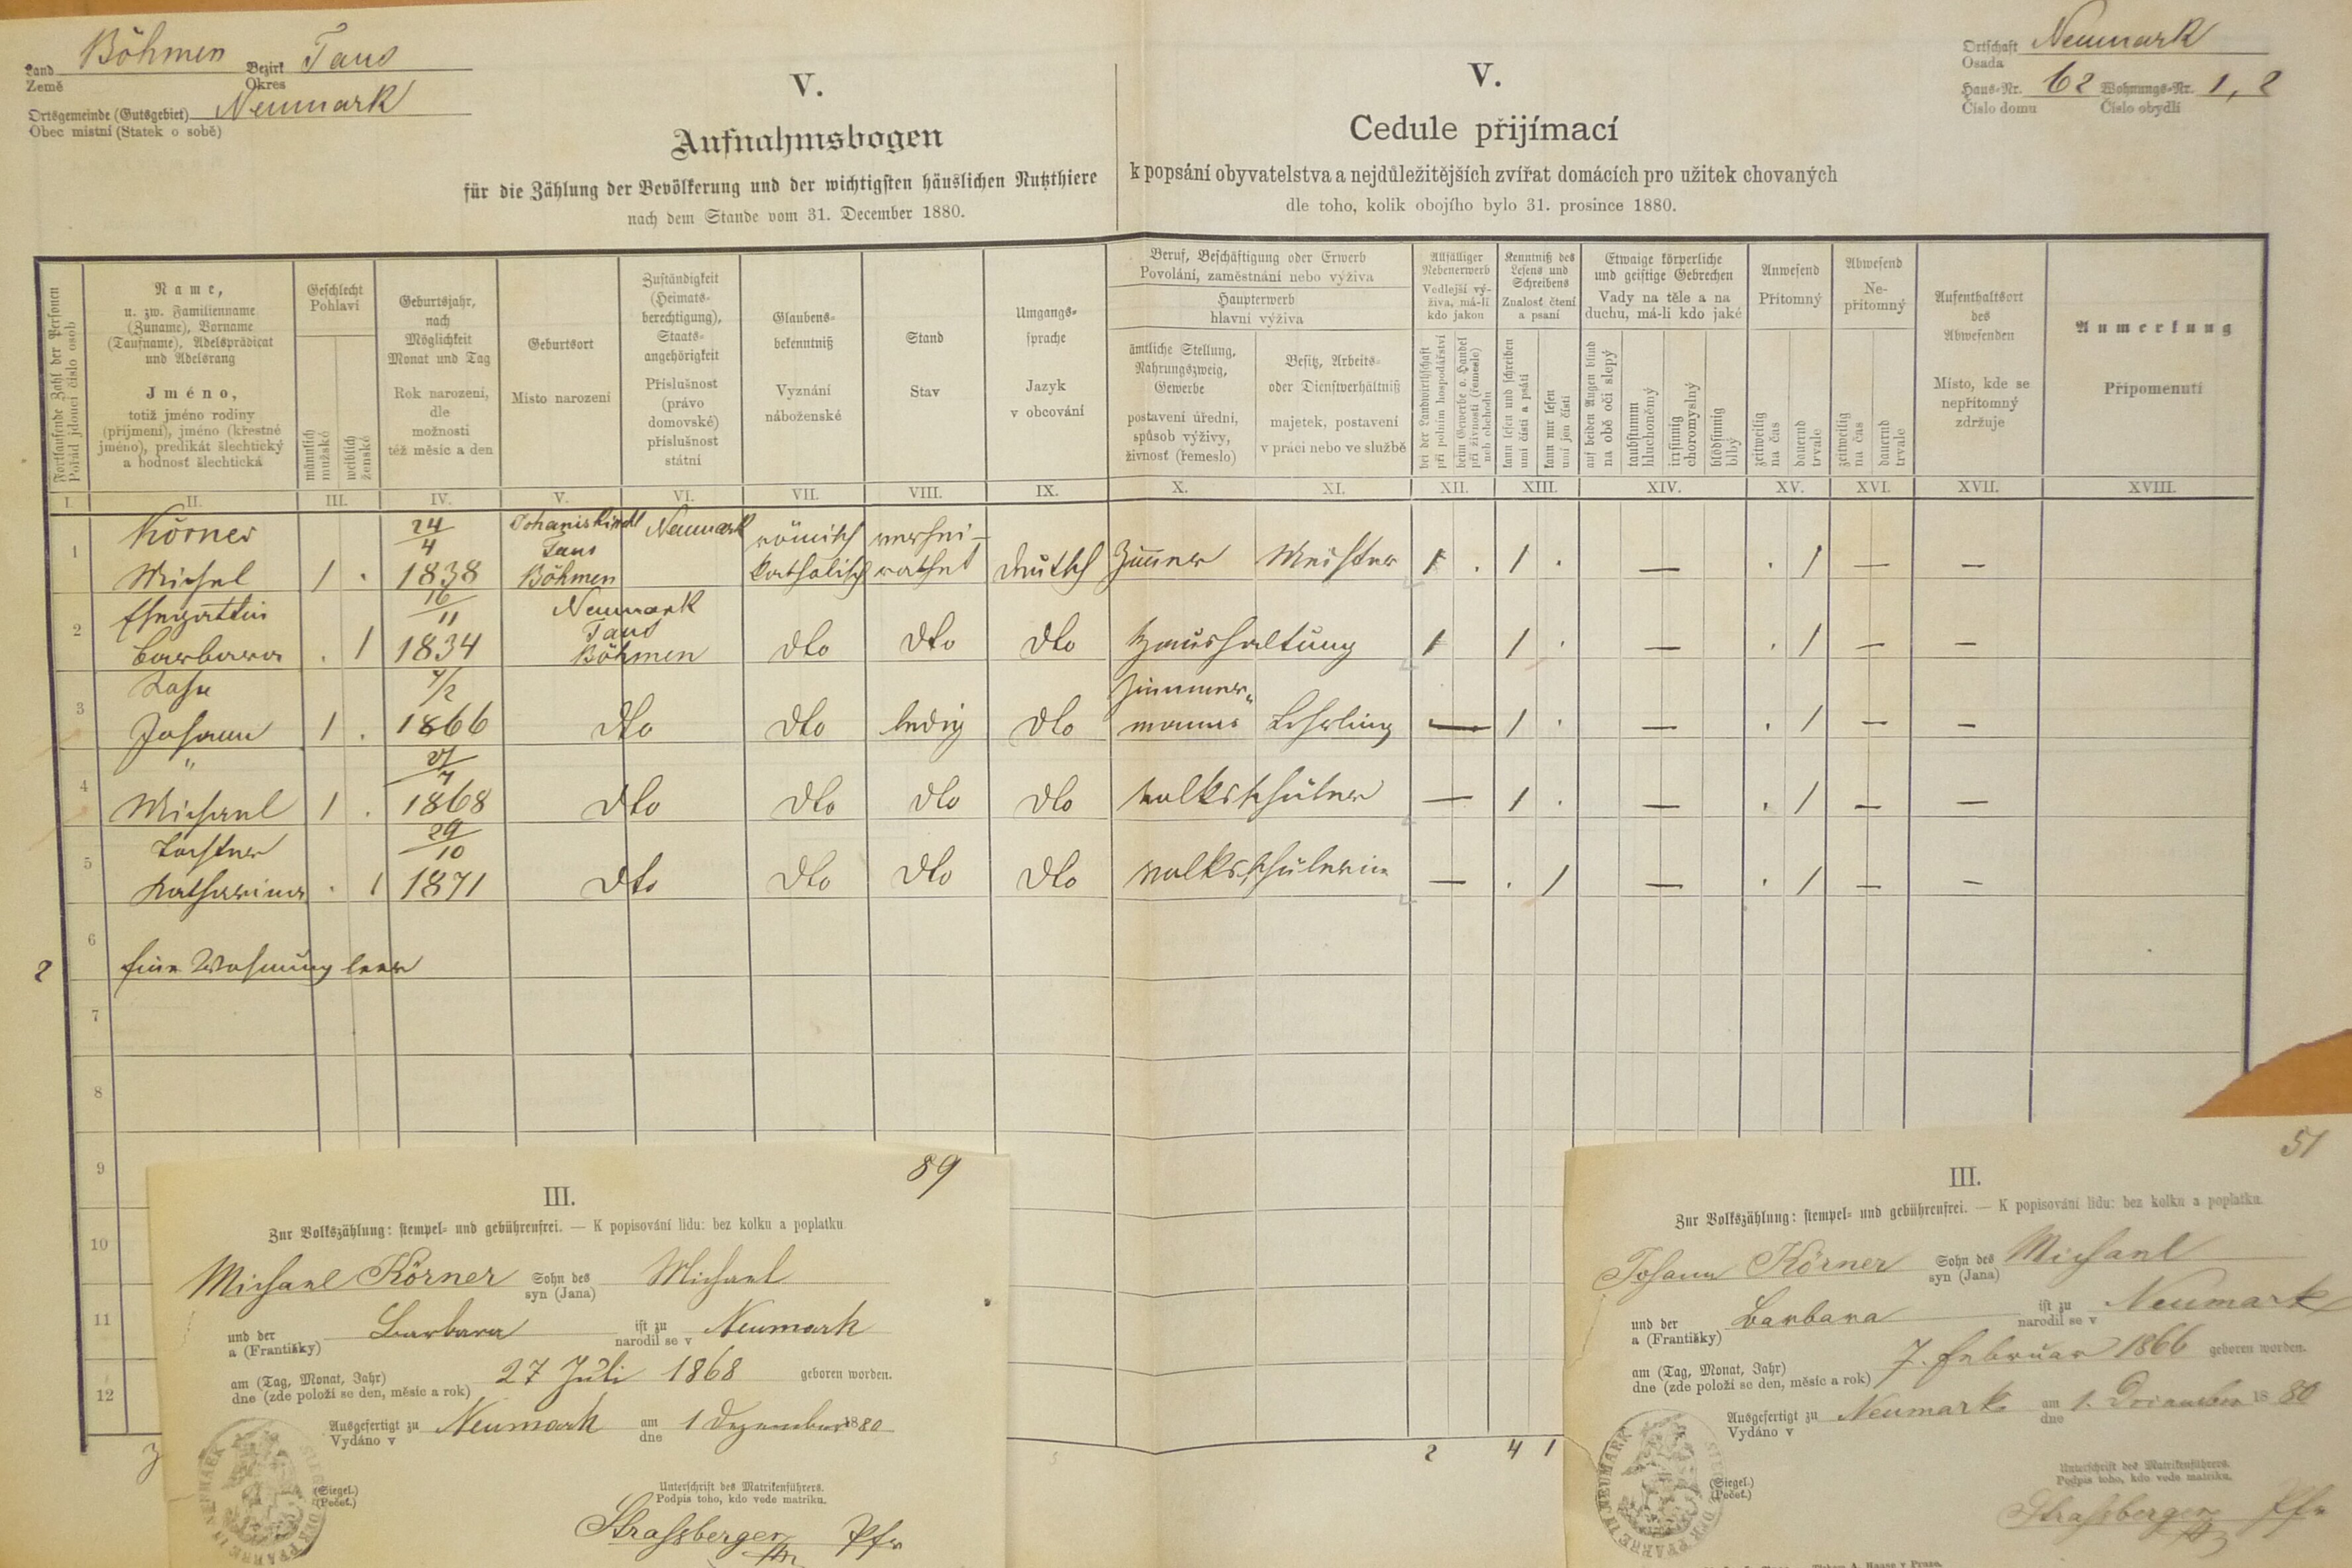 Land Böhmen Bezirk Taus
Země Okres
Ortsgemeinde (Gutsgebiet) Neumark
Obec místní (Statek o sobě)
V.
Aufnahmsbogen
für die Zählung der Bevölkerung und der wichtigsten häuslichen Nutzthiere
nach dem Stande vom 31. December 1880.
V.
Cedule přijímací
k popsání obyvatelstva a nejdůležitějších zvířat domácích pro užitek chovaných
dle toho, kolik obojího bylo 31. prosince 1880.
Ortschaft Neumark
Osada
Haus-Nr. 62 Wohnungs-Nr. 1, 2
Číslo domu Číslo obydlí
Fortlaufende Zahl der Personen
Pořád jdoucí číslo osob
Name,
u. zw. Familienname
(Zuname), Vorname
(Taufname), Adelsprädicat
und Adelsrang
Jméno,
totiž jméno rodiny
(příjmení), jméno (křestné
jméno), predikát šlechtický
a hodnost šlechtická
Geschlecht
Pohlaví
männlich
mužské
weiblich
ženské
Geburtsjahr,
nach
Möglichkeit
Monat und Tag
Rok narození,
dle
možnosti
též měsíc a den
Geburtsort
Místo narození
Zuständigkeit
(Heimats-
berechtigung),
Staats-
angehörigkeit
Příslušnost
(právo
domovské)
příslušnost
státní
Glaubens-
bekenntniß
Vyznání
náboženské
Stand
Stav
Umgangs-
sprache
Jazyk
v obcování
Beruf, Beschäftigung oder Erwerb
Povolání, zaměstnání nebo výživa
Haupterwerb
hlavní výživa
ämtliche Stellung,
Nahrungszweig,
Gewerbe
postavení úřední,
spůsob výživy,
živnost (řemeslo)
Besitz, Arbeits-
oder Dienstverhältniß
majetek, postavení
v práci nebo ve službě
Allfälliger
Nebenerwerb
Vedlejší vý-
živa, má-li
kdo jakou
bei der Landwirthschaft
při polním hospodářství
beim Gewerbe o. Handel
při živnosti (řemesle)
neb obchodu
Kenntniß des
Lesens und
Schreibens
Znalost čtení
a psaní
kann lesen und schreiben
umí čísti a psáti
kann nur lesen
umí jen čísti
Etwaige körperliche
und geistige Gebrechen
Vady na těle a na
duchu, má-li kdo jaké
auf beiden Augen blind
na obě oči slepý
taubstumm
hluchoněmý
irrsinnig
choromyslný
blödsinnig
blbý
Anwesend
Přítomný
zeitweilig
na čas
dauernd
trvale
Abwesend
Ne-
přítomný
zeitweilig
na čas
dauernd
trvale
Aufenthaltsort
des
Abwesenden
Místo, kde se
nepřítomný
zdržuje
Anmerkung
Připomenutí
I. II. III. IV. V. VI. VII. VIII. IX. X. XI. XII. XIII. XIV. XV. XVI. XVII. XVIII.
Körner 24/4 Neumark römisch verhei-
1 Michel 1 . 1838 Taus Böhmen katholisch rathet deutsch Zimmer Meister 1 . 1 . — . 1 — —
Ehegattin 16/11 Neumark
Taus
2 Barbara . 1 1834 Böhmen dto dto dto Haushaltung 1 1 . — . 1 — —
Sohn 7/2 Zimmer-
3 Johann 1 . 1866 dto dto ledig dto manns Lehrling — 1 . — . 1 — —
" 27/7
4 Michael 1 . 1868 dto dto dto dto Volksschüler — 1 . — . 1 — —
Tochter 29/10
5 Katharina . 1 1871 dto dto dto dto Volksschülerin — . 1 — . 1 — —
6
2 Eine Wohnung leer
7
8
9
10
11
12
2 4 1
89
III.
Zur Volkszählung: stempel- und gebührenfrei. — K popisování lidu: bez kolku a poplatku
Michael Körner Sohn des Michael
syn (Jana)
und der Barbara ist zu Neumark
a (Františky) narodil se v
am (Tag, Monat, Jahr) 27 Juli 1868 geboren worden.
dne (zde položí se den, měsíc a rok)
Ausgefertigt zu Neumark am 1 Dezember 1880
Vydáno v dne
(Siegel.)
(Pečeť.)
Unterschrift des Matrikenführers.
Podpis toho, kdo vede matriku.
Strassberger Pfr
SIEGEL DER PFARRE IN NEUMARK
51
III.
Zur Volkszählung: stempel- und gebührenfrei. — K popisování lidu: bez kolku a poplatku.
Johann Körner Sohn des Michael
syn (Jana)
und der Barbara ist zu Neumark
a (Františky) narodil se v
am (Tag, Monat, Jahr) 7. Februar 1866 geboren worden.
dne (zde položí se den, měsíc a rok)
Ausgefertigt zu Neumark am 1. Dezember 1880
Vydáno v dne
(Siegel.)
(Pečeť.)
Unterschrift des Matrikenführers.
Podpis toho, kdo vede matriku.
Strassberger Pfr
SIEGEL DER PFARRE IN NEUMARK
A. Haase v Praze.